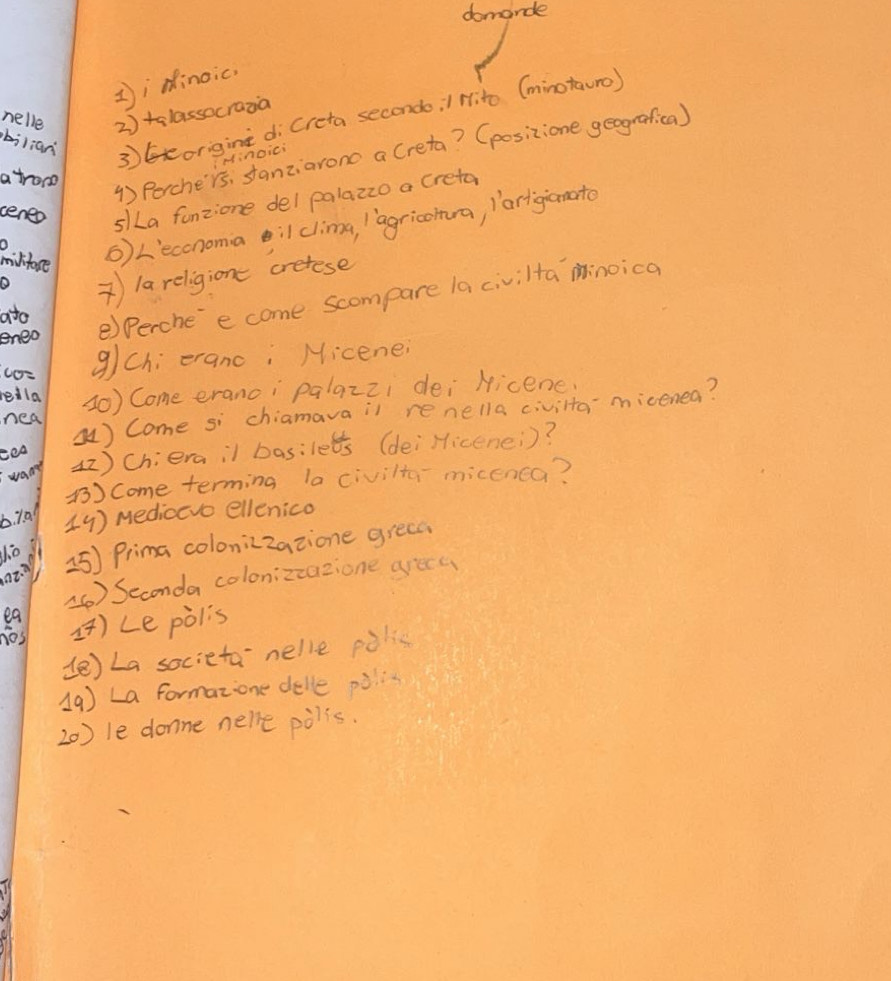 domande
1) i Minoici
2) talassocrazia
3) origini di Creta secondo il Mito (minotauro)
4) Perchè i Minoici si stanziarono a Creta? (posizione geografica)
5) La funzione del palazzo a Creta
6) L'economia il clima, l'agricoltura, l'artigianato
7) la religione cretese
8) Perchè e come scompare la civiltà minoica
9) Chi erano i Micenei
10) Come erano i palazzi dei Micenei
11) Come si chiamava il re nella civiltà micenea?
12) Chi era il basileus (dei Micenei)?
13) Come terming la civiltà micenea?
14) Medioevo ellenico
15) Prima colonizzazione greca
16) Seconda colonizzazione greca
17) Le pòlis
18) La società nelle pòlis
19) La formazione delle pòlis
20) le donne nelle pòlis.
nelle
biliari
a trono
ceneo
o
militare
o
ato
eneo
nella
nea
ea